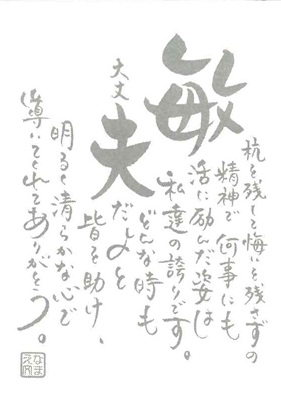 杭を残して悔いを残さずの
精神で何事にも
敏活に励んだ姿は
私達の誇りです。
どんな時も
大丈夫だよと
皆を助け、
明るく清らかな心で
導いてくれてありがとう。